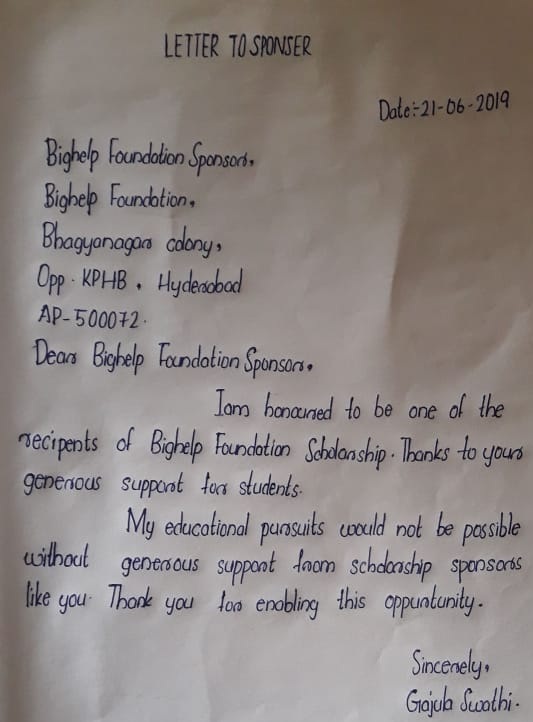 LETTER TO SPONSER
Date:-21-06-2019
Bighelp Foundation Sponsors,
Bighelp Foundation,
Bhagyanagar colony,
Opp. KPHB, Hyderabad
AP-500072.
Dear Bighelp Foundation Sponsor,
I am honoured to be one of the
recipents of Bighelp Foundation Scholarship. Thanks to your
generious support for students.
My educational pursuits would not be possible
without generous support from scholarship sponsors
like you. Thank you for enabling this oppuntunity.
Sincerely,
Gajula Swathi.